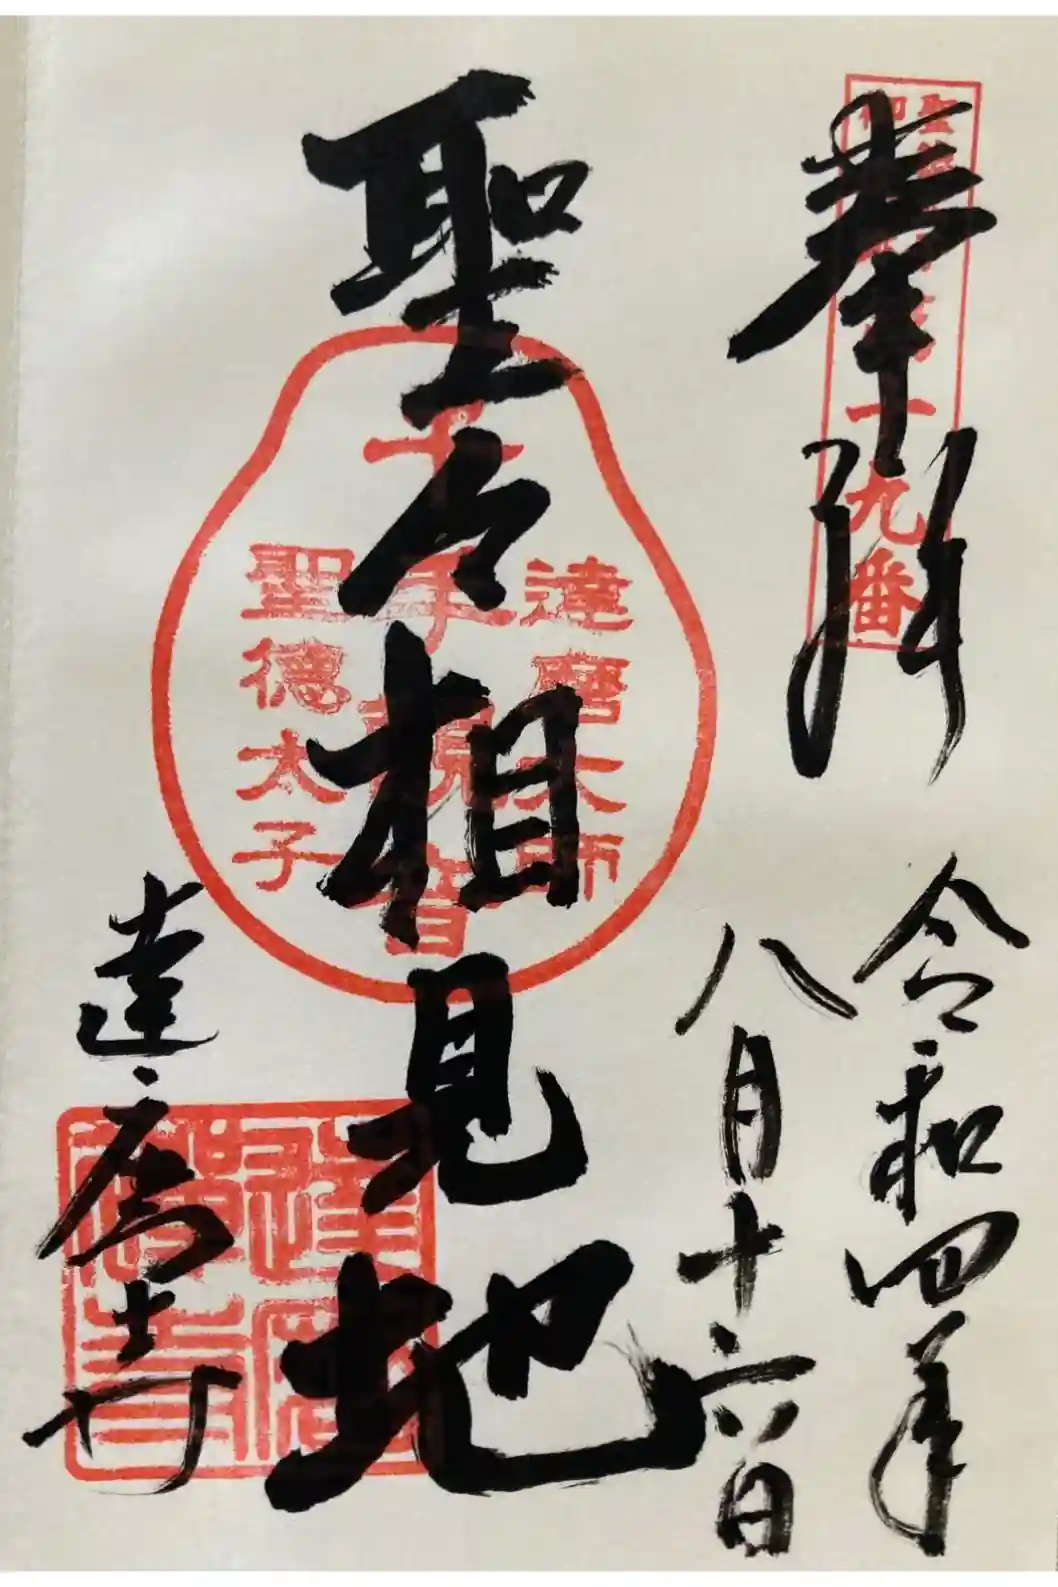 奉拝
一九番
令和四年
八月十六日
聖々相見地
達磨大師
千手観音
聖徳太子
達磨寺